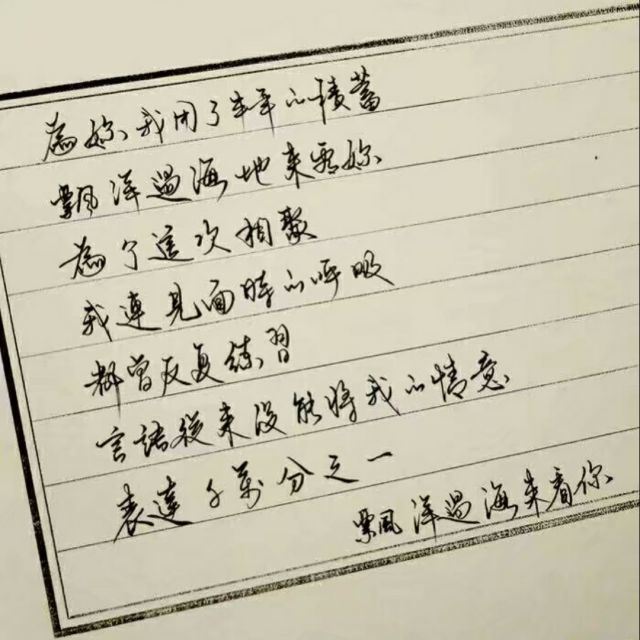 為妳我用了半年的積蓄
飄洋過海地來看妳
為了這次相聚
我連見面時的呼吸
都曾反复練習
言語從來沒能將我的情意
表達千萬分之一
飄洋過海來看你